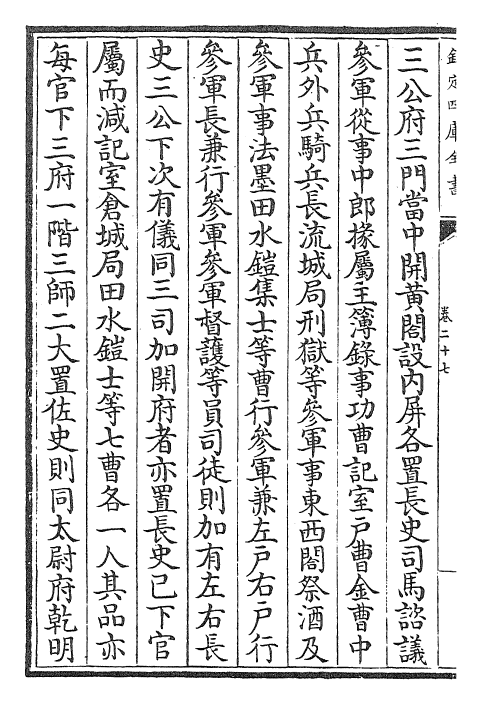 欽定四庫全書
卷二十七
三公府三門當中開黃閤設內屏各置長史司馬諮議
參軍從事中郎掾屬主簿錄事功曹記室戶曹金曹中
兵外兵騎兵長流城局刑獄等參軍事東西閤祭酒及
參軍事法墨田水鎧集士等曹行參軍兼左戶右戶行
參軍長兼行參軍參軍督護等員司徒則加有左右長
史三公下次有儀同三司加開府者亦置長史已下官
屬而減記室倉城局田水鎧士等七曹各一人其品亦
每官下三府一階三師二大置佐史則同太尉府乾明